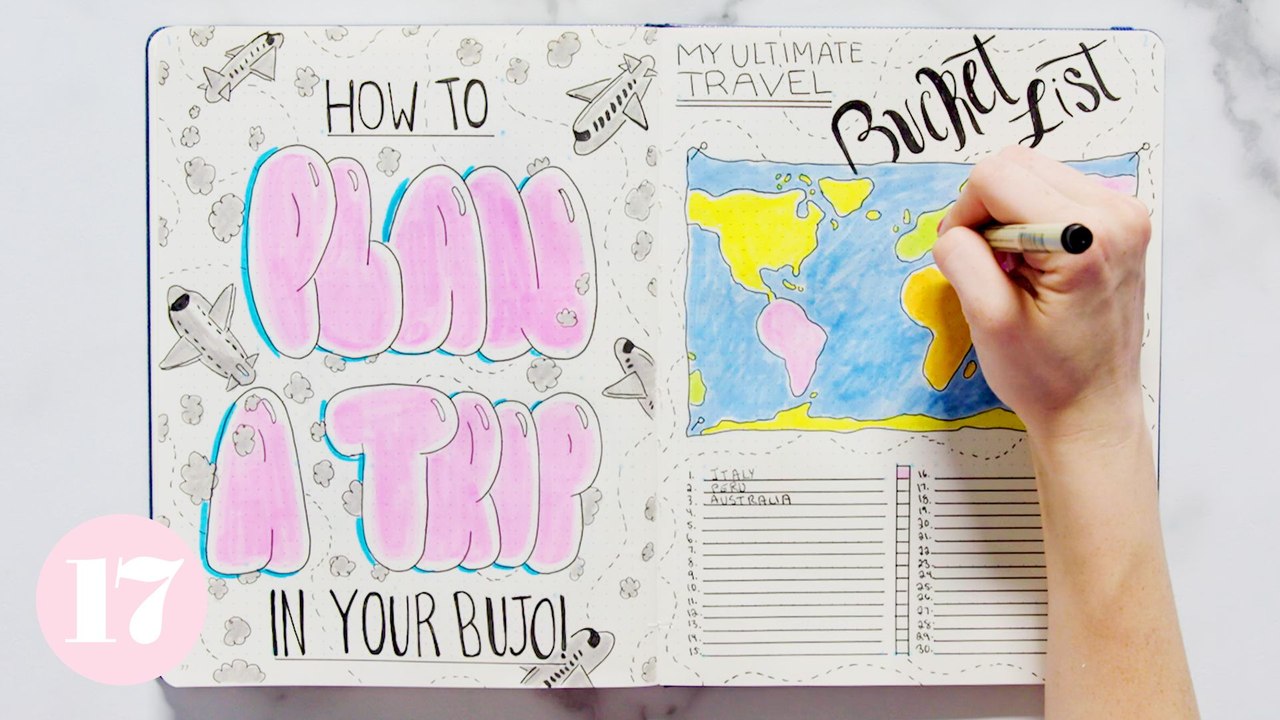 HOW TO
PLAN
A TRIP
IN YOUR BUJO!
17
MY ULTIMATE
TRAVEL
BUCKET
LIST
1. ITALY
2. PERU
3. AUSTRALIA
4.
5.
6.
7.
8.
9.
10.
11.
12.
13.
14.
15.
16.
17.
18.
19.
20.
21.
22.
23.
24.
25.
26.
27.
28.
29.
30.